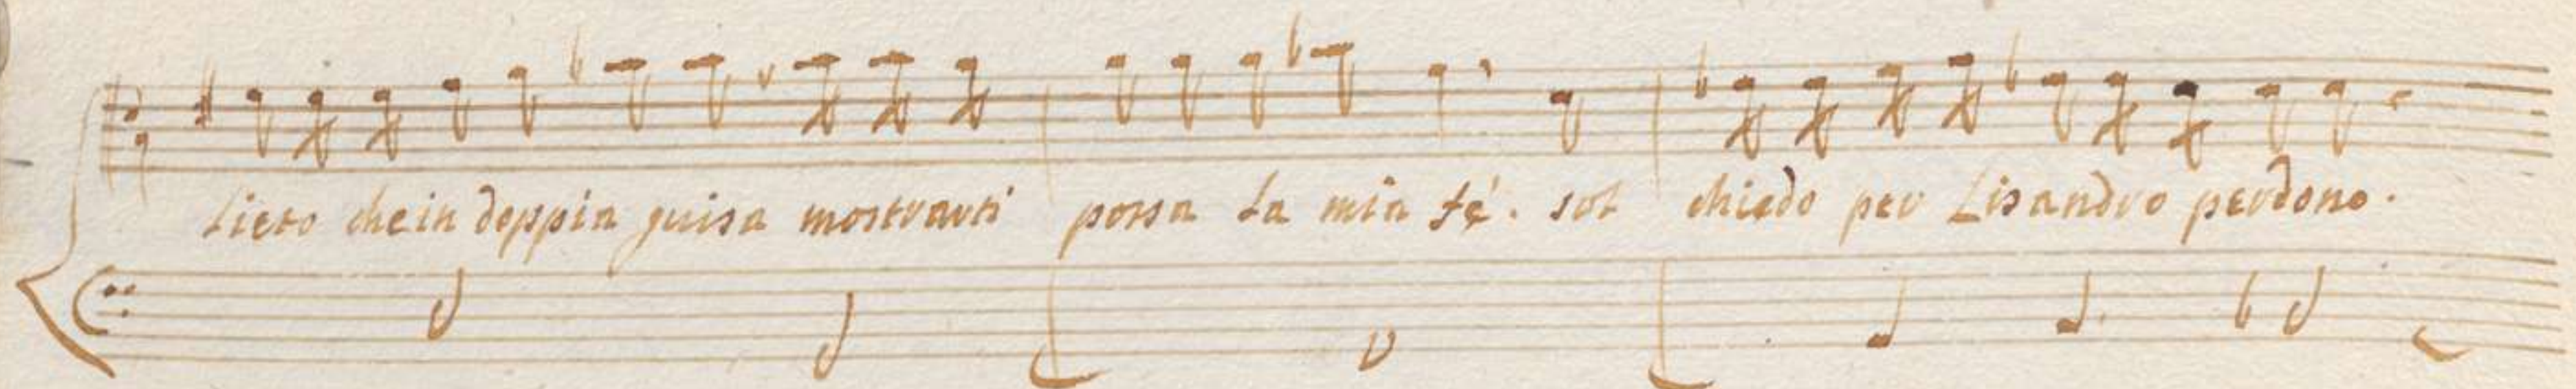 Lieto che in doppia guisa mostrarti possa la mia fé. sol chiedo per Lisandro perdono.